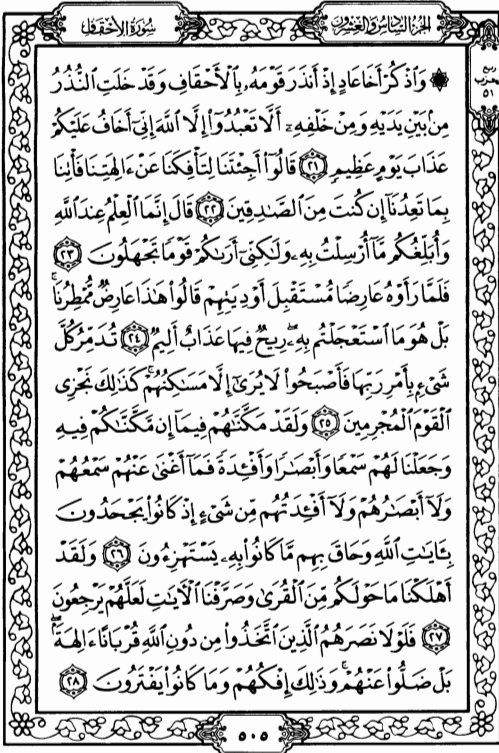 سُورَةُ الأَحْقَافِ
الجُزْءُ السَّادِسُ وَالعِشْرُونَ
ربع
حزب
٥١
۞ وَٱذْكُرْ أَخَا عَادٍ إِذْ أَنذَرَ قَوْمَهُۥ بِٱلْأَحْقَافِ وَقَدْ خَلَتِ ٱلنُّذُرُ
مِنۢ بَيْنِ يَدَيْهِ وَمِنْ خَلْفِهِۦٓ أَلَّا تَعْبُدُوٓا۟ إِلَّا ٱللَّهَ إِنِّىٓ أَخَافُ عَلَيْكُمْ
عَذَابَ يَوْمٍ عَظِيمٍ ٢١ قَالُوٓا۟ أَجِئْتَنَا لِتَأْفِكَنَا عَنْ ءَالِهَتِنَا فَأْتِنَا
بِمَا تَعِدُنَآ إِن كُنتَ مِنَ ٱلصَّـٰدِقِينَ ٢٢ قَالَ إِنَّمَا ٱلْعِلْمُ عِندَ ٱللَّهِ
وَأُبَلِّغُكُم مَّآ أُرْسِلْتُ بِهِۦ وَلَـٰكِنِّىٓ أَرَىٰكُمْ قَوْمًا تَجْهَلُونَ ٢٣
فَلَمَّا رَأَوْهُ عَارِضًا مُّسْتَقْبِلَ أَوْدِيَتِهِمْ قَالُوا۟ هَـٰذَا عَارِضٌ مُّمْطِرُنَا ۚ
بَلْ هُوَ مَا ٱسْتَعْجَلْتُم بِهِۦ ۖ رِيحٌ فِيهَا عَذَابٌ أَلِيمٌ ٢٤ تُدَمِّرُ كُلَّ
شَىْءٍۭ بِأَمْرِ رَبِّهَا فَأَصْبَحُوا۟ لَا يُرَىٰٓ إِلَّا مَسَـٰكِنُهُمْ ۚ كَذَٰلِكَ نَجْزِى
ٱلْقَوْمَ ٱلْمُجْرِمِينَ ٢٥ وَلَقَدْ مَكَّنَّـٰهُمْ فِيمَآ إِن مَّكَّنَّـٰكُمْ فِيهِ
وَجَعَلْنَا لَهُمْ سَمْعًا وَأَبْصَـٰرًا وَأَفْـِٔدَةً فَمَآ أَغْنَىٰ عَنْهُمْ سَمْعُهُمْ
وَلَآ أَبْصَـٰرُهُمْ وَلَآ أَفْـِٔدَتُهُم مِّن شَىْءٍ إِذْ كَانُوا۟ يَجْحَدُونَ
بِـَٔايَـٰتِ ٱللَّهِ وَحَاقَ بِهِم مَّا كَانُوا۟ بِهِۦ يَسْتَهْزِءُونَ ٢٦ وَلَقَدْ
أَهْلَكْنَا مَا حَوْلَكُم مِّنَ ٱلْقُرَىٰ وَصَرَّفْنَا ٱلْـَٔايَـٰتِ لَعَلَّهُمْ يَرْجِعُونَ
٢٧ فَلَوْلَا نَصَرَهُمُ ٱلَّذِينَ ٱتَّخَذُوا۟ مِن دُونِ ٱللَّهِ قُرْبَانًا ءَالِهَةًۢ ۖ
بَلْ ضَلُّوا۟ عَنْهُمْ ۚ وَذَٰلِكَ إِفْكُهُمْ وَمَا كَانُوا۟ يَفْتَرُونَ ٢٨
٥٠٥